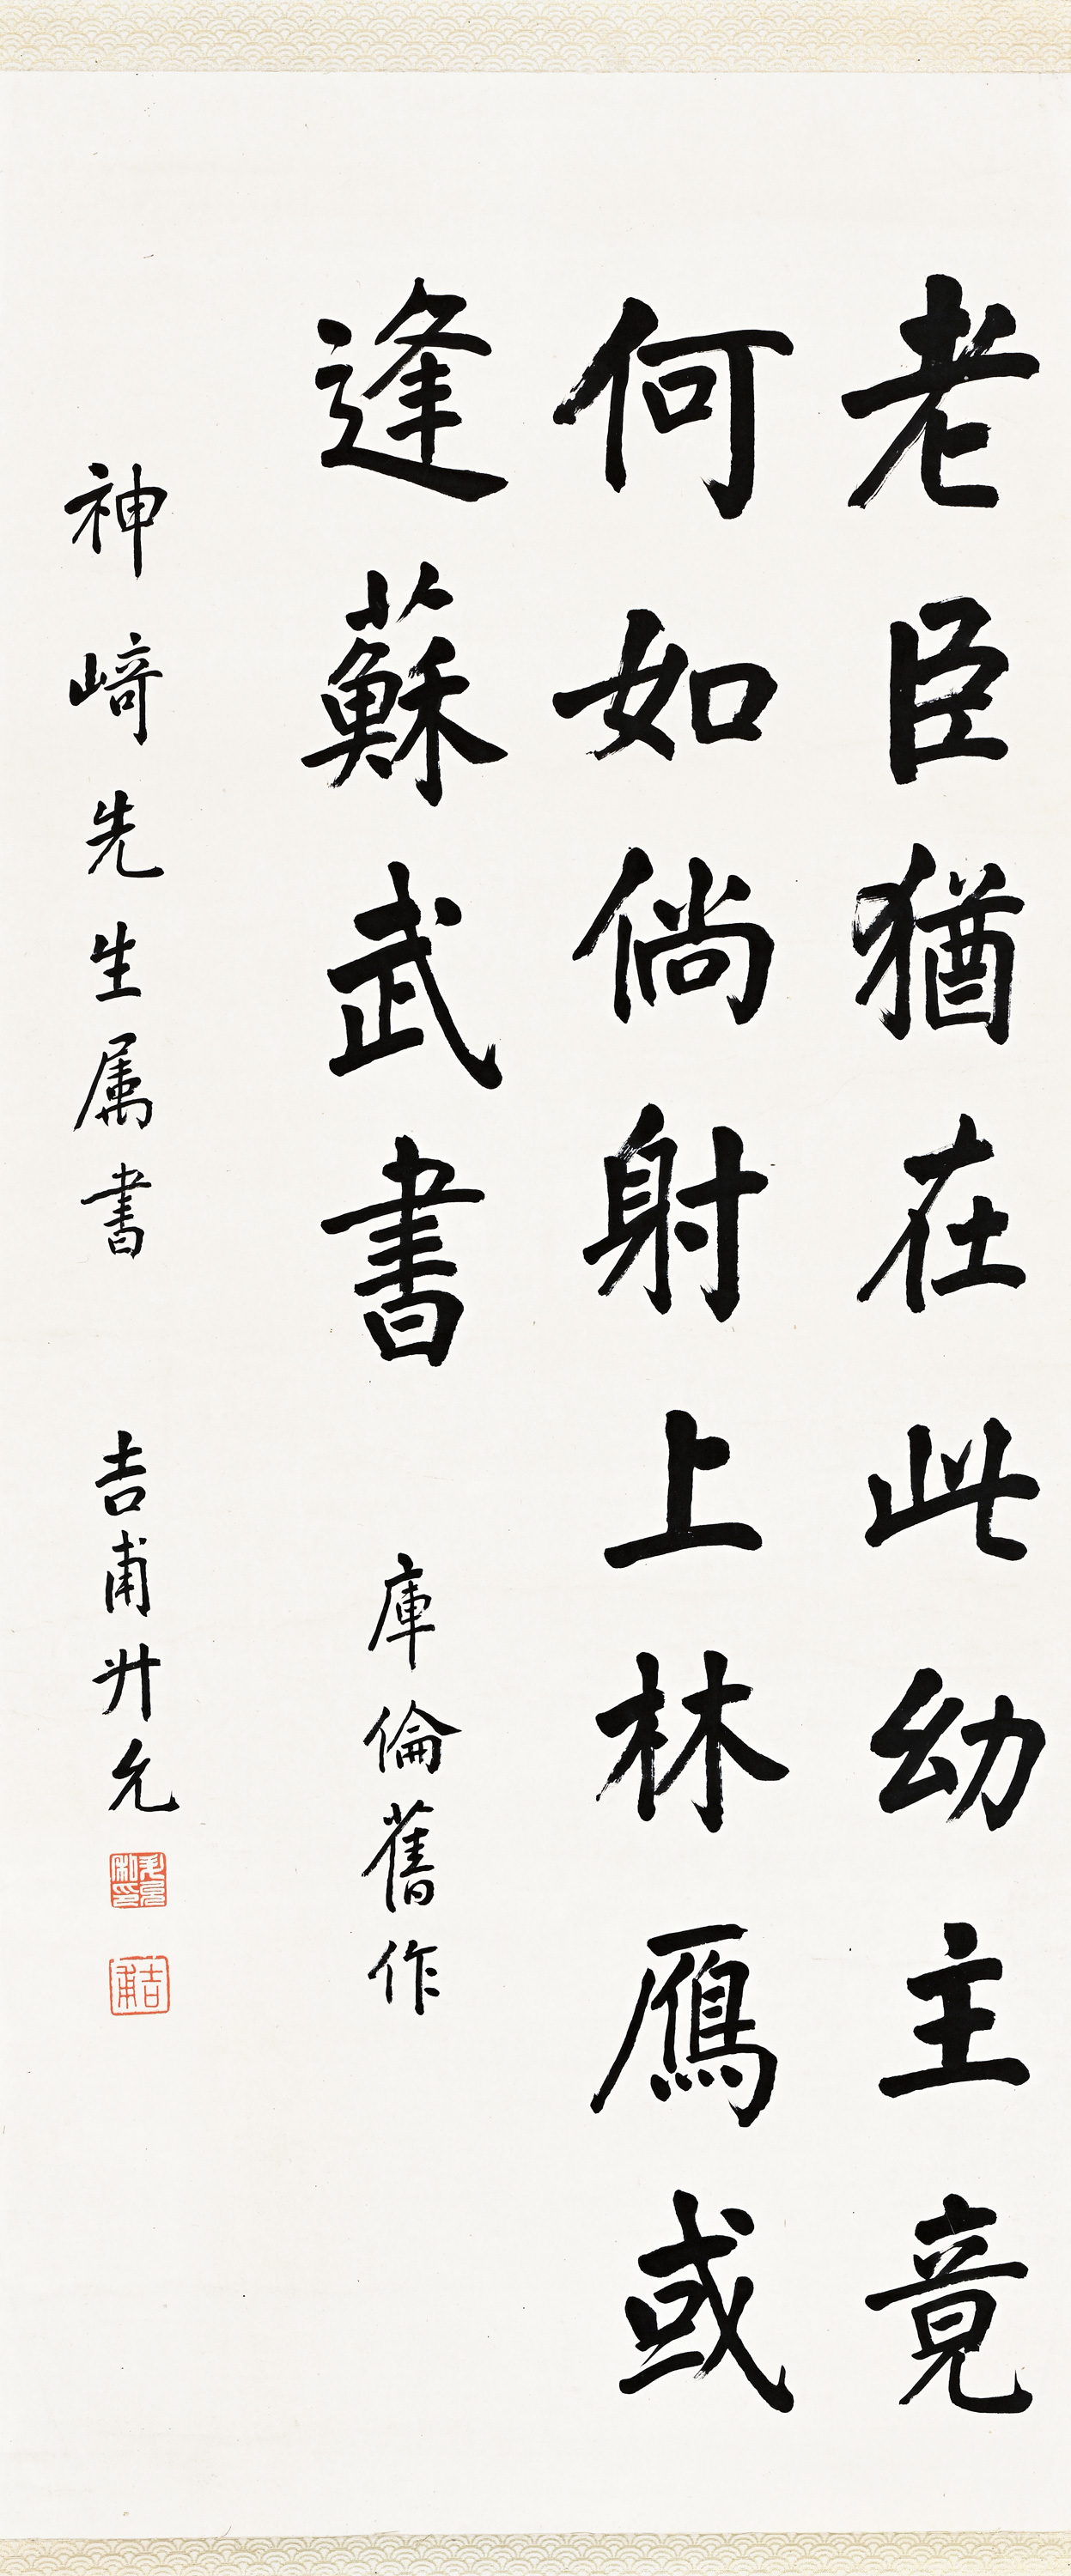 老臣猶在此幼主竟
何如倘射上林鴈或
逢蘇武書
庫倫舊作
神﨑先生属書
吉甫升允
吉甫